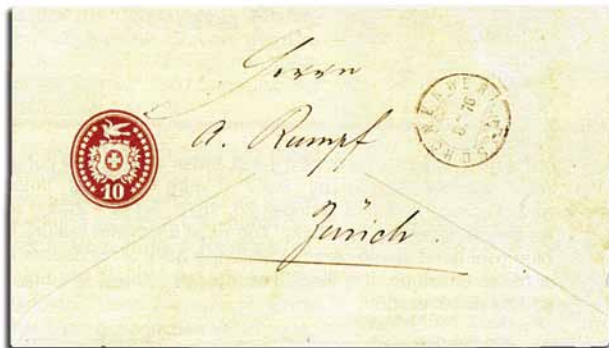 Herrn
A. Rumpf
Zürich.
10
76